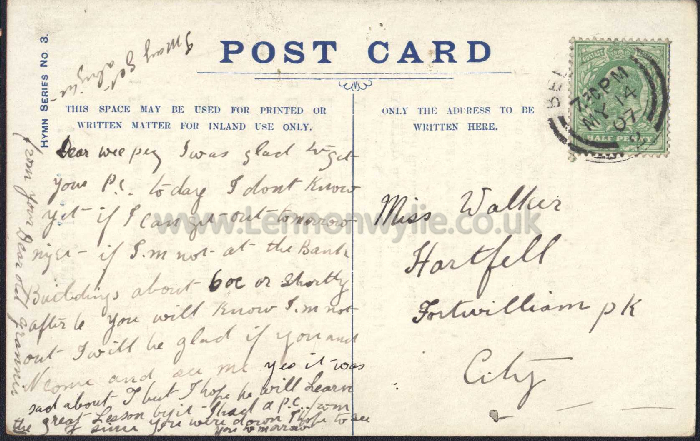 POST CARD
HYMN SERIES NO 3.
THIS SPACE MAY BE USED FOR PRINTED OR
WRITTEN MATTER FOR INLAND USE ONLY.
ONLY THE ADDRESS TO BE
WRITTEN HERE.
HALF PENNY
BEL
7 PM
MY 14
07
Dear wee peg I was glad to get
your P.C. today I dont know
yet if I can get out tomorrow
nige - if I.m not at the Bank
Buildings about 6oc or shortly
after 6 you will know I.m not
out I will be glad if you and
N come and see me yes it was
sad about I but I hope he will Learn
the great Lesson by it - I had a P.C. from
since you were down I hope to see
you tomorrow
from your Dear old Grannie
I may get
Miss Walker
Hartfell
Fortwilliam pk
City
www.Lennonwylie.co.uk